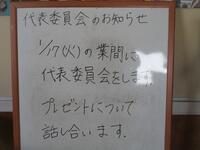 代表委員会のお知らせ
1/17(火)の業間に
代表委員会をします
プレゼントについて
話し合います.